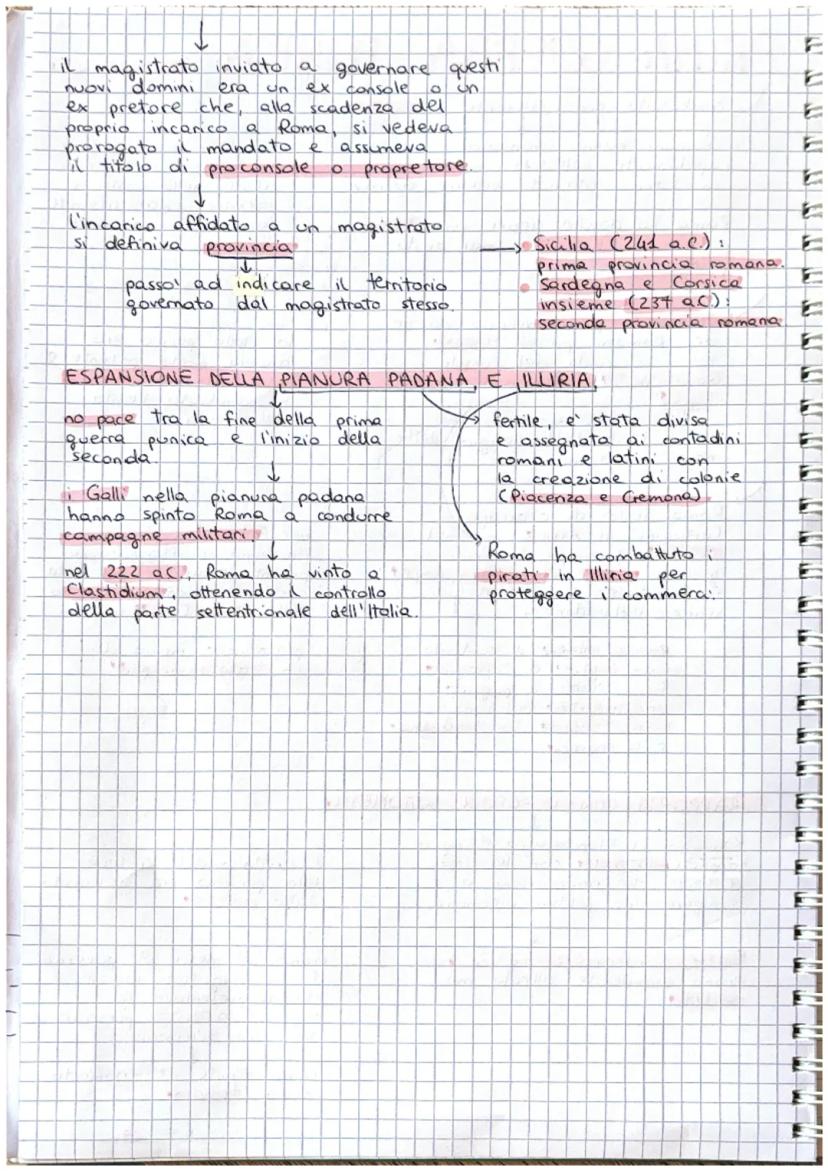 il magistrato inviato a governare questi
nuovi domini era un ex console o un
ex pretore che, alla scadenza del
proprio incarico a Roma, si vedeva
prorogato il mandato e assumeva
il titolo di proconsole o propretore.
l'incarico affidato a un magistrato
si definiva provincia
passo' ad indicare il territorio
governato dal magistrato stesso.
Sicilia (241 a.C.):
prima provincia romana.
Sardegna e Corsica
insieme (237 a.C):
seconda provincia romana
ESPANSIONE DELLA PIANURA PADANA E ILLIRIA
no pace tra la fine della prima
guerra punica e l'inizio della
seconda.
i Galli nella pianura padana
hanno spinto Roma a condurre
campagne militari.
nel 222 a.C., Roma ha vinto a
Clastidium, ottenendo il controllo
della parte settentrionale dell'Italia.
fertile, e' stata divisa
e assegnata ai contadini
romani e latini con
la creazione di colonie
(Piacenza e Cremona)
Roma ha combattuto i
pirati in Illiria per
proteggere i commerci.